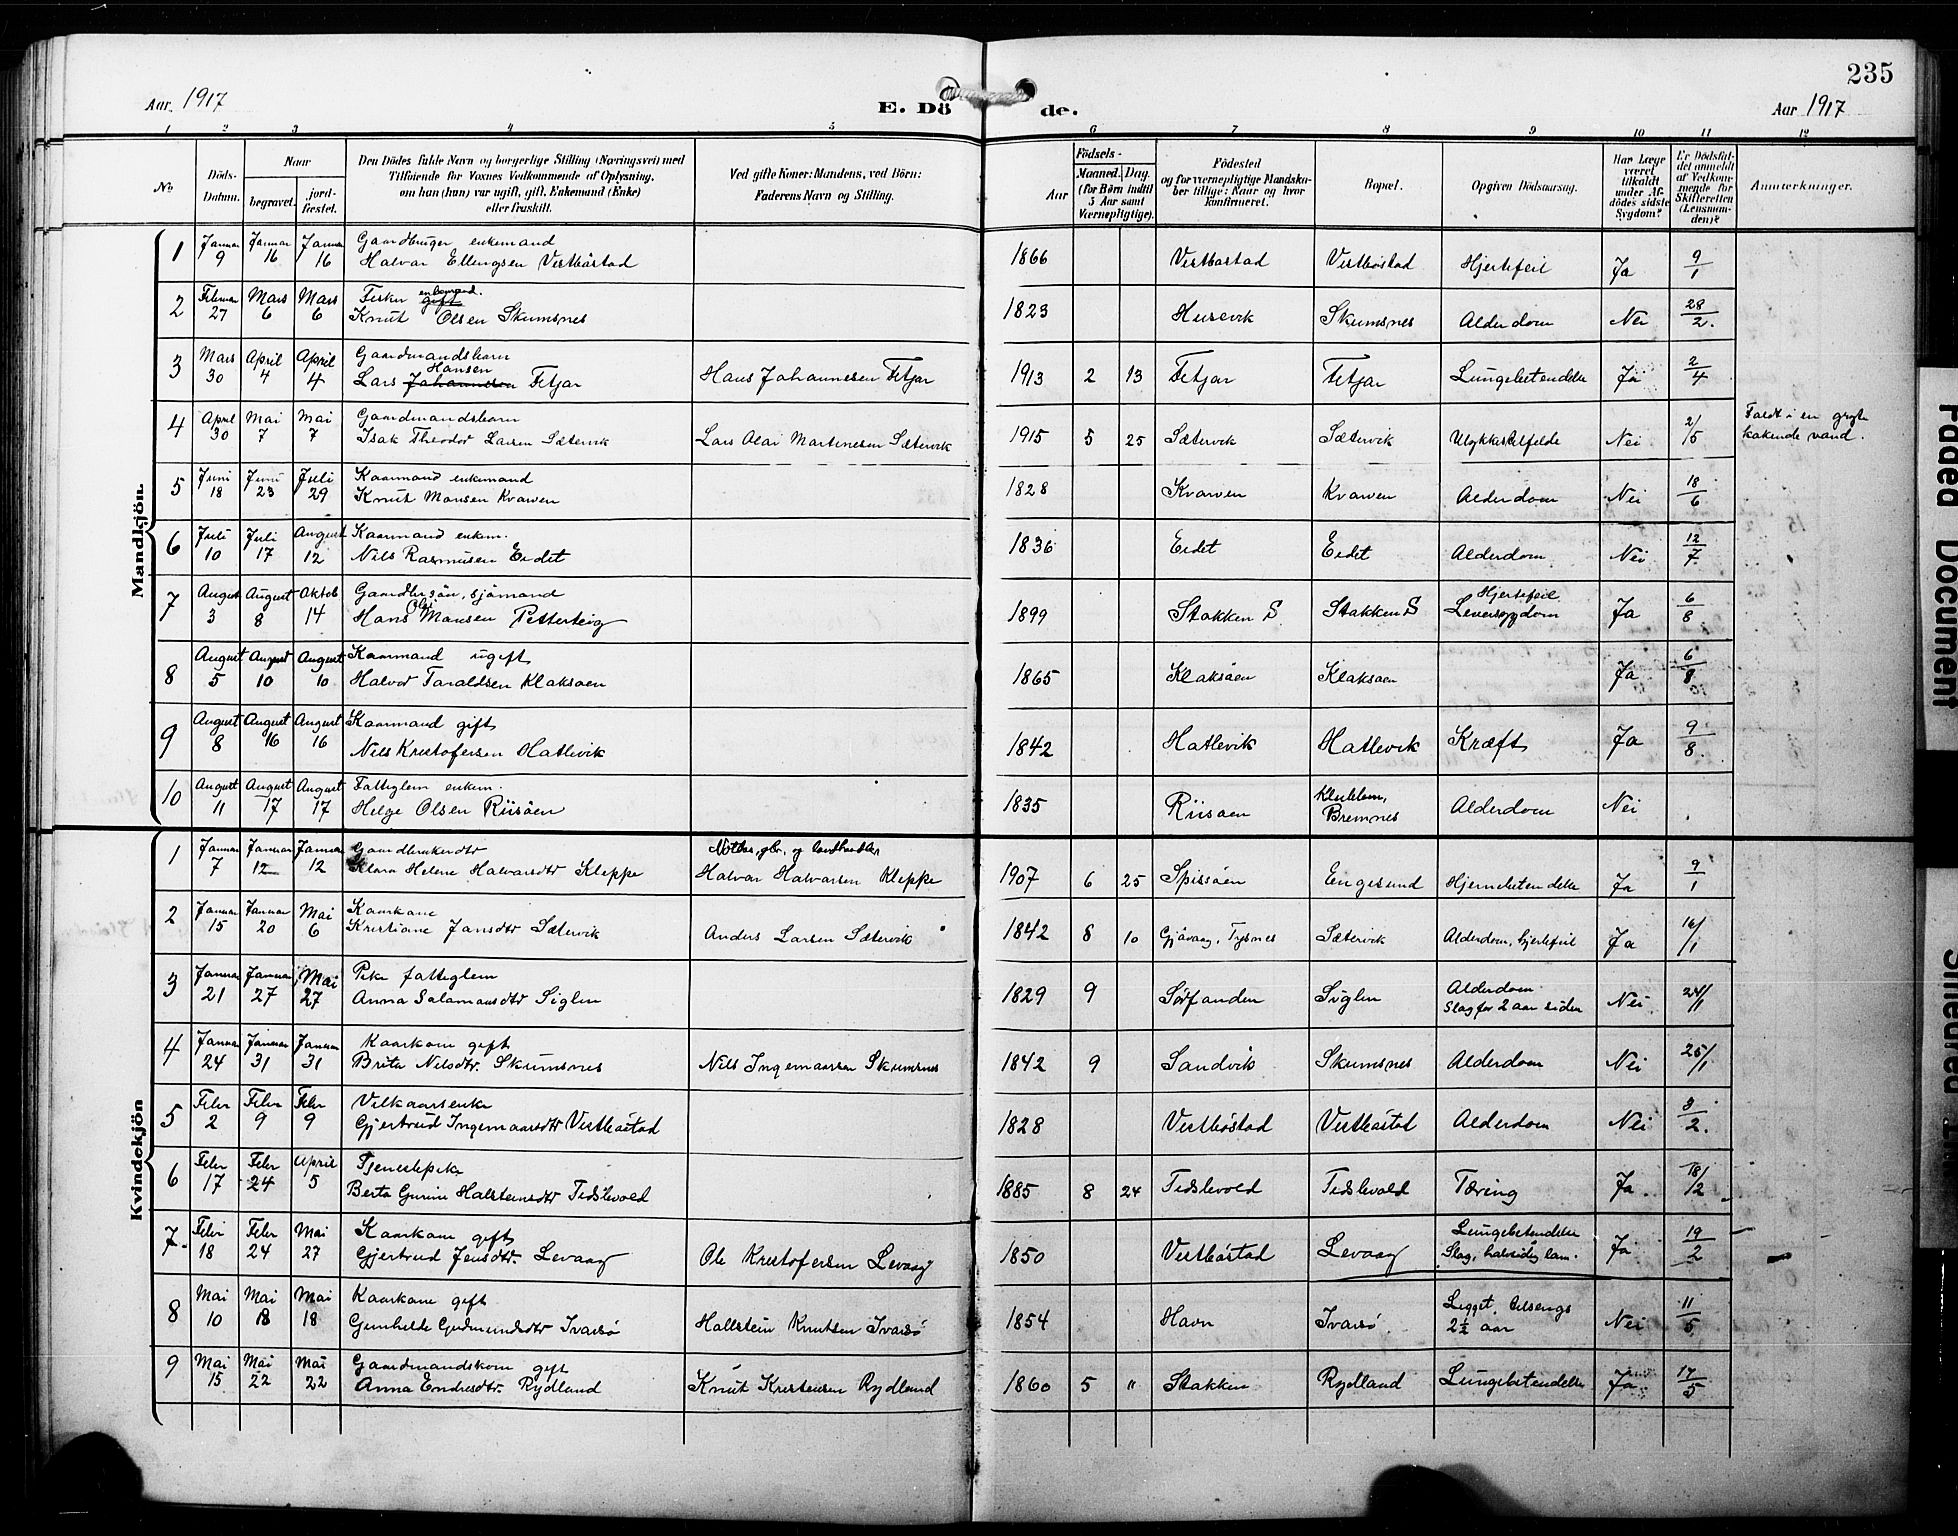 235
Aar 1917 E. Dö de. Aar 1917
1 2 3 4 5 6 7 8 9 10 11 12
No
Döds-Datum.
Naar
begravet.
jordfæstet.
Den Dödes fulde Navn og borgerlige Stilling (Næringsvei) med Tilföiende for Voxnes Vedkommende af Oplysning, om han (hun) var ugift, gift, Enkemand (Enke) eller fraskilt.
Ved gifte Koner: Mandens, ved Börn: Faderens Navn og Stilling.
Födsels-
Aar
Maaned. Dag.
(for Börn indtil 5 Aar samt Værnepligtige).
Födested og for værnepligtige Mandskaber tillige: Naar og hvor konfirmeret.
Bopæl.
Opgiven Dödsaarsag.
Har Læge været tilkaldt under Afdödes sidste Sygdom?
Er Dödsfaldet anmeldt af Vedkommende for Skifteretten (Lensmanden)?
Anmærkninger.
Mandkjön.
1 Januar 9 Januar 16 Januar 16 Gaardbruger enkemand
Halvar Ellingsen Vestbøstad 1866 Vestbøstad Vestbøstad Hjertefeil Ja 9/1
2 Februar 27 Mars 6 Mars 6 Fisker gift enkemand.
Knut Olsen Skumsnes 1823 Husevik Skumsnes Alderdom Nei 28/2.
3 Mars 30 April 4 April 4 Gaardmandsbarn
Lars Johannesen Hansen Fitjar Hans Johannesen Fitjar 1913 2 13 Fitjar Fitjar Lungebetendelse Ja 2/4
4 April 30 Mai 7 Mai 7 Gaardmandsbarn
Isak Theodor Larsen Sætervik Lars Olai Martinesen Sætervik 1915 5 25 Sætervik Sætervik Ulykkestilfelde Nei 2/5 Faldt i en gryte kokende vand.
5 Juni 18 Juni 23 Juli 29 Kaarmand enkemand
Knut Monsen Kvarven 1828 Kvarven Kvarven Alderdom Nei 18/6
6 Juli 10 Juli 17 August 12 Kaarmand enkem.
Nils Rasmusen Eidet 1836 Eidet Eidet Alderdom Nei 12/7.
7 August 3 August 8 Oktob 14 Gaardbr søn, sjømand
Hans Olai Monsen Petterteig 1899 Stokken S. Stokken S Hjertefeil Leversygdom Ja 6/8
8 August 5 August 10 August 10 Kaarmand ugift
Halvor Taraldsen Klaksøen 1865 Klaksøen Klaksøen Ja 6/8
9 August 8 August 16 August 16 Kaarmand gift
Nils Kristofersen Hatlevik 1842 Hatlevik Hatlevik Kræft Ja 9/8.
10 August 11 August 17 August 17 Fattiglem enkem.
Helge Olsen Riisøen 1835 Riisøen Bremnes Alderdom Nei
Kvindekjön
1 Januar 7 Januar 12 Januar 12 Gaardbrukerdtr
Klara Helene Halvarsdtr Kleppe gbr. og landhandler Halvar Halvarsen Kleppe 1907 6 25 Spissøen Engesund Hjernebetendelse Ja 9/1
2 Januar 15 Januar 20 Mai 6 Kaarkone
Kristiane Jansdtr Sætervik Anders Larsen Sætervik 1842 8 10 Gjøvaag, Tysnes Sætervik Alderdom, hjertefeil Ja 16/1
3 Januar 21 Januar 27 Mai 27 Pike fattiglem
Anna Salamonsdtr Siglen 1829 9 Sørfonden Siglen Alderdom Slag for 2 aar siden Nei 24/1
4 Januar 24 Januar 31 Januar 31 Kaarkone gift
Brita Nilsdtr. Skumsnes Nils Ingemaarsen Skumsnes 1842 9 Sandvik Skumsnes Alderdom Nei 25/1
5 Febr 2 Febr 9 Febr 9 Vilkaarsenke
Gjertrud Ingemaarsdtr Vestbøstad 1828 Vestbøstad Vestbøstad Alderdom Nei 3/2.
6 Febr 17 Febr 24 April 5 Tjenestepike
Berta Gurine Halsteinsdtr Tidslevold 1885 8 24 Tidslevold Tidslevold Tæring Ja 18/2
7 Febr 18 Febr 24 Mai 27 Kaarkone gift
Gjertrud Jensdtr. Levaag Ole Kristofersen Levaag 1850 Vestbøstad Levaag Lungebetendelse Slag, halvsidig lam. Ja 19/2
8 Mai 10 Mai 18 Mai 18 Kaarkone gift
Gunhilde Gudmundsdtr Ivarsø Hallstein Knutsen Ivarsø 1854 Havn Ivarsø Ligget tilsengs 2½ aar Nei 11/5
9 Mai 15 Mai 22 Mai 22 Gaardmandskone gift
Anna Endresdtr. Rydland Knut Kristensen Rydland 1860 5 " Stokken Rydland Lungebetendelse Ja 17/5
Faded Document